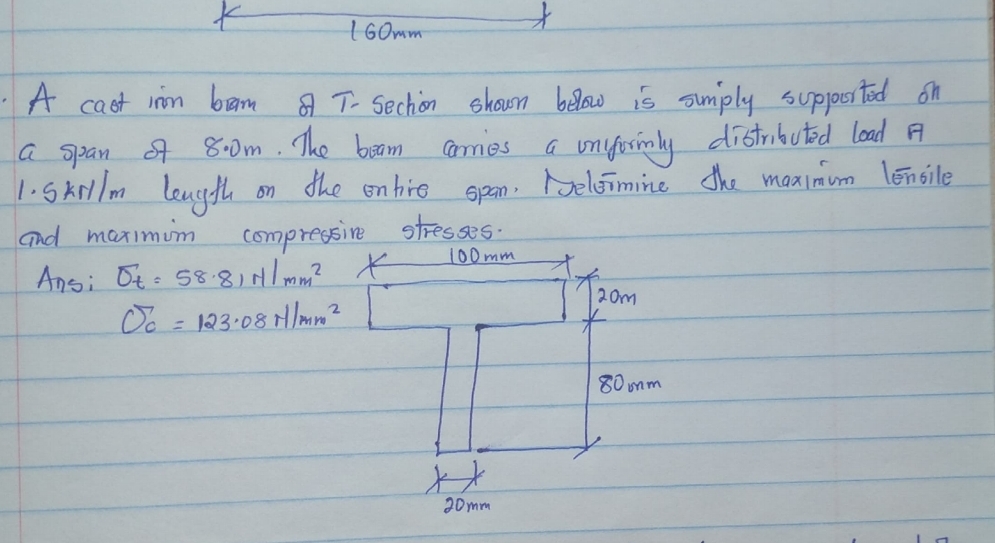 160mm
A cast iron beam of T-Section shown below is simply supported on
a span of 8.0m. The beam carries a uniformly distributed load of
1.5kN/m length on the entire span. Determine the maximum tensile
and maximum compressive stresses.
100mm
Ans: σt = 58.81N/mm²
20m
σc = 123.08N/mm²
80mm
20mm